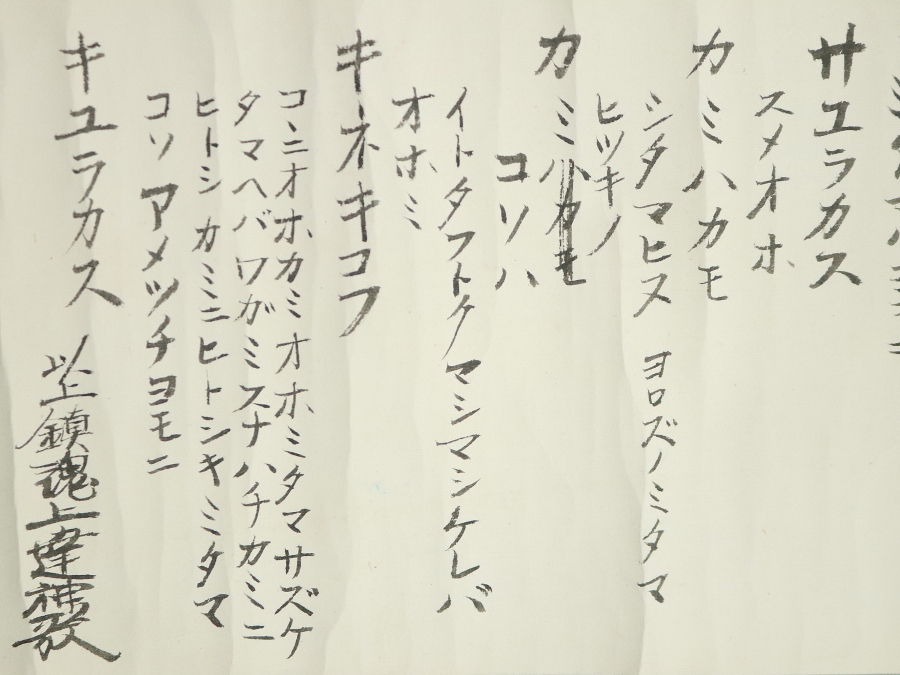 サユラカス
スメオホ
カミハカモ
シタマヒヌ ヨロズノミタマ
ヒツキノ
カミハカモ
コソハ
イトタフトクマシマシケレバ
オホミ
キネキコフ
コニオホカミオホミタマサズケ
タマヘバワガミスナハチカミニ
ヒトシカミニヒトシキミタマ
コソアメツチヨモニ
キユラカス
以上鎮魂上達神歌